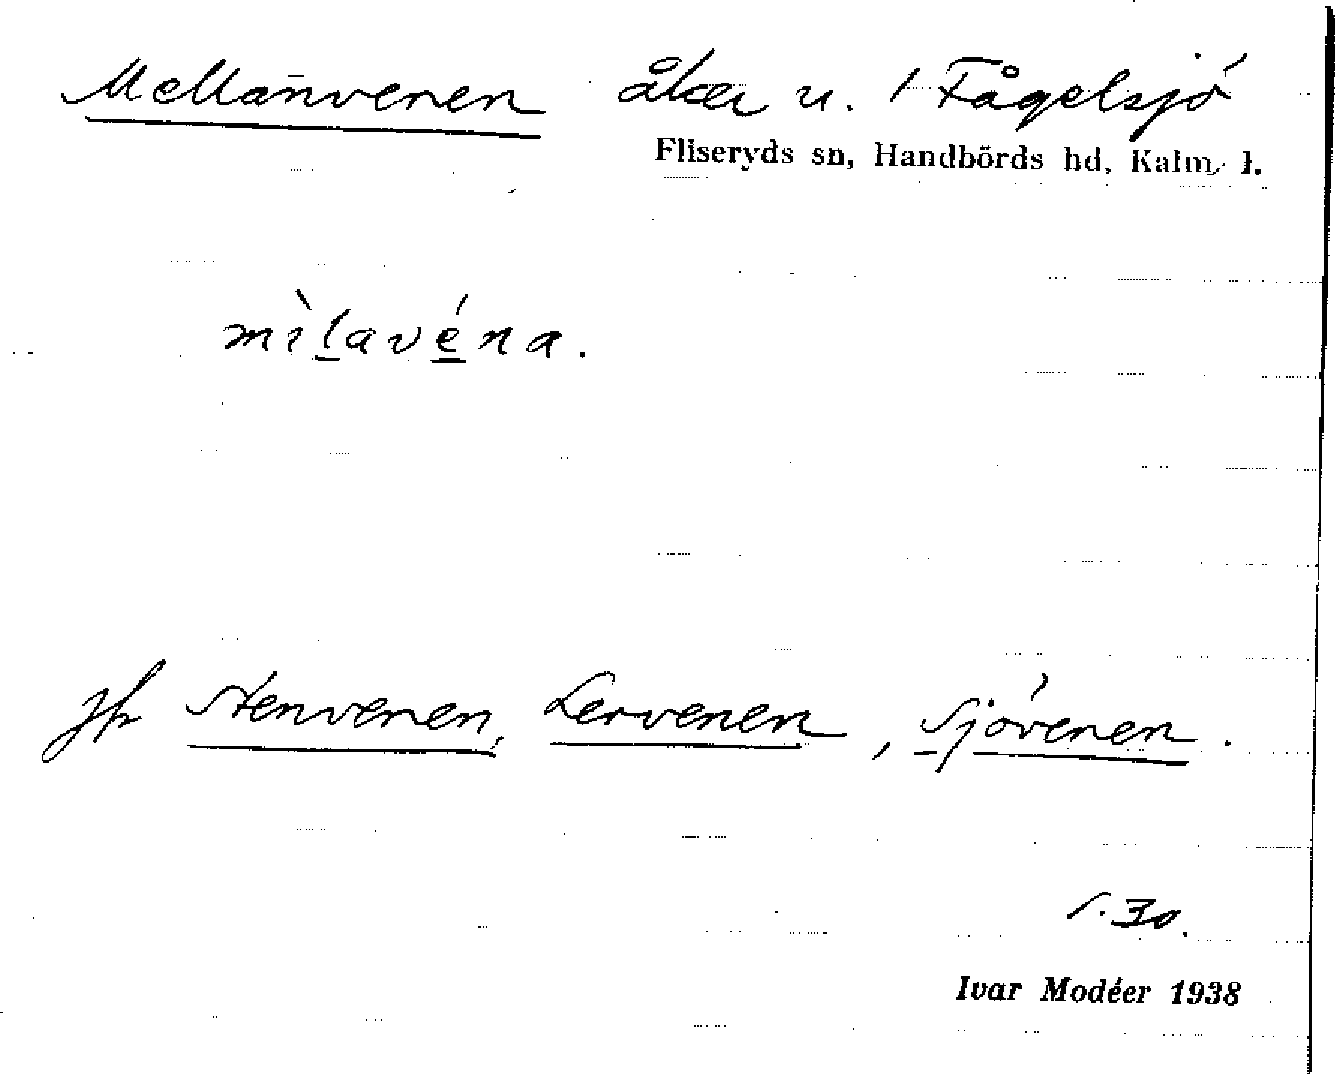 Mellanvenen åker u. 1 Fågelsjö
Fliseryds sn, Handbörds hd, Kalm. l.
mìlavéna.
jfr Stenvenen, Lervenen, Sjövenen.
s. 30.
Ivar Modéer 1938